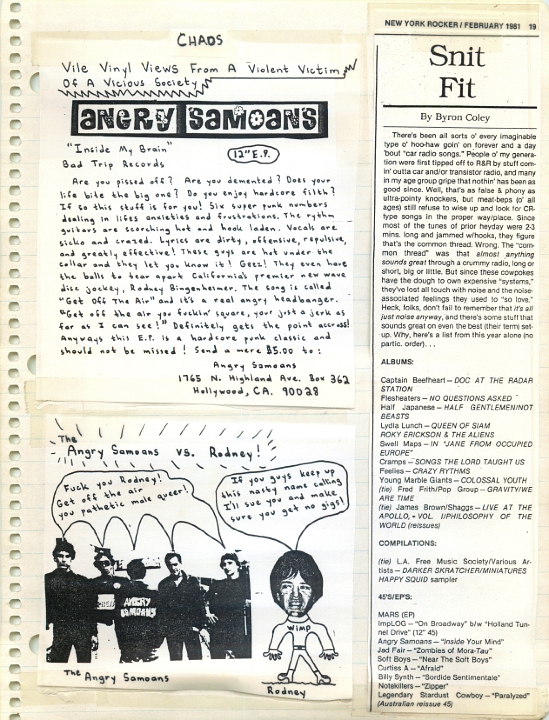 CHAOS
Vile Vinyl Views From A Violent Victim
Of A Vicious Society
ANGRY SAMOANS
"Inside My Brain"
12" E.P.
Bad Trip Records
Are you pissed off? Are you demented? Does your
life bite the big one? Do you enjoy hardcore filth?
If so this stuff is for you! Six super punk numbers
dealing in lifes anxieties and frustrations. The rythm
guitars are scorching hot and hook laden. Vocals are
sicko and crazed. Lyrics are dirty, offensive, repulsive,
and greatly effective! These guys are hot under the
collar and they let you know it! Geez! They even have
the balls to tear apart California's premier new wave
disc jockey, Rodney Bingenheimer. The song is called
"Get Off The Air" and it's a real angry headbanger.
"Get off the air you fuckin' square, your just a jerk as
far as I can see!" Definitely gets the point accross!
Anyways this E.P. is a hardcore punk classic and
should not be missed! Send a mere $5.00 to:
Angry Samoans
1765 N. Highland Ave. Box 362
Hollywood, CA. 90028
The Angry Samoans vs. Rodney!
Fuck you Rodney!
Get off the air
you pathetic male queer!
If you guys keep up
this nasty name calling
I'll sue you and make
sure you get no gigs!
ANGRY
SAMOANS
WIMP
The Angry Samoans
Rodney
NEW YORK ROCKER / FEBRUARY 1981 19
Snit
Fit
By Byron Coley
There's been all sorts o' every imaginable
type o' hoo-haw goin' on forever and a day
'bout "car radio songs." People o' my genera-
tion were first tipped off to R&R by stuff com-
in' outta car and/or transistor radio, and many
in my age group gripe that nothin' has been as
good since. Well, that's as false & phony as
ultra-pointy knockers, but meat-beps (o' all
ages) still refuse to wise up and look for CR-
type songs in the proper way/place. Since
most of the tunes o' prior heyday were 2-3
mins. long and jammed w/hooks, they figure
that's the common thread. Wrong. The "com-
mon thread" was that almost anything
sounds great through a crummy radio, long or
short, big or little. But since these cowpokes
have the dough to own expensive "systems,"
they've lost all touch with noise and the noise-
associated feelings they used to "so love."
Heck, folks, don't fail to remember that it's all
just noise anyway, and there's some stuff that
sounds great on even the best (their term) set-
up. Why, here's a list from this year alone (no
partic. order). . .
ALBUMS:
Captain Beefheart – DOC AT THE RADAR
STATION
Flesheaters – NO QUESTIONS ASKED
Half Japanese – HALF GENTLEMEN/NOT
BEASTS
Lydia Lunch – QUEEN OF SIAM
ROKY ERICKSON & THE ALIENS
Swell Maps – IN "JANE FROM OCCUPIED
EUROPE"
Cramps – SONGS THE LORD TAUGHT US
Feelies – CRAZY RHYTHMS
Young Marble Giants – COLOSSAL YOUTH
(tie) Fred Frith/Pop Group – GRAVITY/WE
ARE TIME
(tie) James Brown/Shaggs – LIVE AT THE
APOLLO, VOL. I/PHILOSOPHY OF THE
WORLD (reissues)
COMPILATIONS:
(tie) L.A. Free Music Society/Various Ar-
tists – DARKER SKRATCHER/MINIATURES
HAPPY SQUID sampler
45'S/EP'S:
MARS (EP)
ImpLOG – "On Broadway" b/w "Holland Tun-
nel Drive" (12" 45)
Angry Samoans – "Inside Your Mind"
Jad Fair – "Zombies of Mora-Tau"
Soft Boys – "Near The Soft Boys"
Curtiss A – "Afraid"
Billy Synth – "Sordide Sentimentale"
Notekillers – "Zipper"
Legendary Stardust Cowboy – "Paralyzed"
(Australian reissue 45)